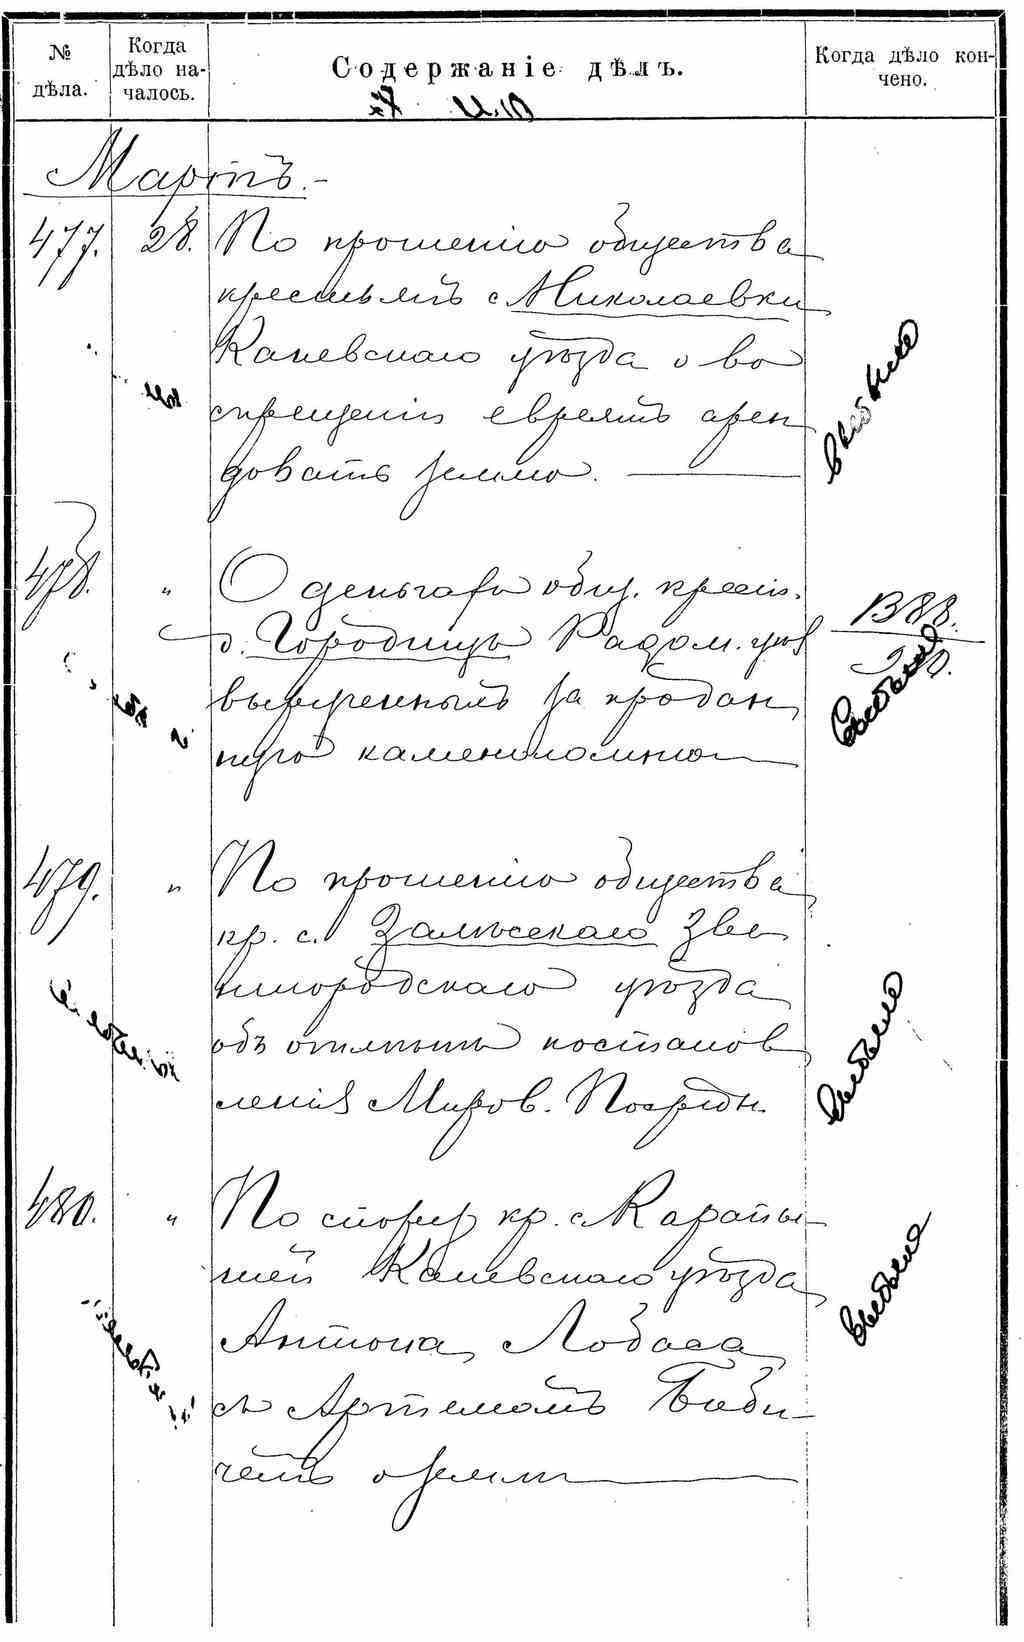 № дѣла. Когда дѣло началось. Содержаніе дѣлъ. Когда дѣло кончено.
Мартъ.
477. 28. По прошенію общества
крестьянъ с. Николаевки
Каневскаго уѣзда о во
спрещеніи евреямъ арен
довать землю.
выбыло
478. " О деньгахъ общ. крест.
д. Городищъ Радом. уѣз
вырученныхъ за продан
ную каменоломню
1388.
выбыло
479. " По прошенію общества
кр. с. Залѣсскаго Зве
нигородскаго уѣзда
объ отмѣнѣ постанов
ленія Миров. Посредн.
выбыло
480. " По спору кр. с. Карапы
шей Каневскаго уѣзда
Антона Лобаса
съ Артемомъ Баби
чемъ о землѣ
выбыло